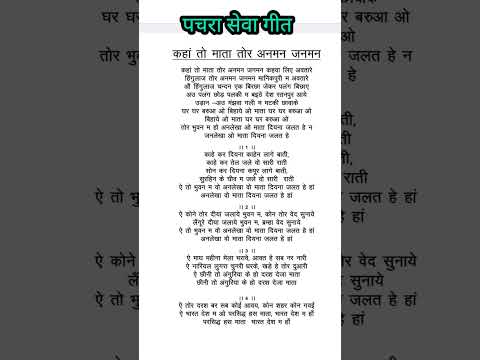 पचरा सेवा गीत
कहां तो माता तोर अनमन जनमन
कहां तो माता तोर अनमन जनमन कहवा लिए अवतारे
हिंगुलाज तोर अनमन जनमन मानिकपुरी म अवतारे
औ हिंगुलाज चन्दन एक बिरछा जेकर पलंग बिछाए
अउ पलंग छोड़ पलकी म बइठे देश रतनपुर आवे
उड़ान –अउ मंझवा गली म मटकी छावाके
घर घर बरुआ ओ बिहाये ओ माता घर घर बरुआ ओ
बिहाये ओ माता घर घर बरुआ ओ
तोर भुवन म हो अनलेखा ओ माता दियना जलत हे न
जनलेखा ओ माता दियना जलत हे
।। 1 ।।
काहे कर दियना काहेन लागे बाती,
काहे कर तेल जले वो सारी राती
सोन कर दियना कपूर लागे बाती,
सुरहिन के घीव म जले वो सारी राती
ऐ तो भुवन म वो अनलेखा वो माता दियना जलत हे हां
अनलेखा वो माता दियना जलत हे हां
।। 2 ।।
ऐ कोने तोर दीया जलाये भुवन म, कोन तोर वेद सुनाये
लेंगुरे दीया जलाये भुवन म, ब्रम्हा वेद सुनाये
ऐ तो भुवन म वो अनलेखा वो माता दियना जलत हे हां
अनलेखा वो माता दियना जलत हे हां
।। 3 ।।
ऐ माघ महीना मेला भराये, आवत हे सब नर नारी
ऐ नारियल लुगरा चुनरी धरके, खड़े हे तोर दुआरी
ऐ छीनी तो अंगुरिया के हो दरश देला माता
छीनी तो अंगुरिया के हो दरश देला माता
।। 4 ।।
ऐ तोर दरश बर सब कोई आवय, कोन शहर कोन गवई
ऐ भारत देश म ओ परसिद्ध हस माता, भारत देश म हॉं
परसिद्ध हस माता भारत देश म हॉं